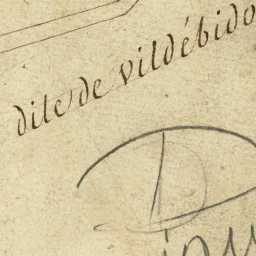 dite de vildébido
D